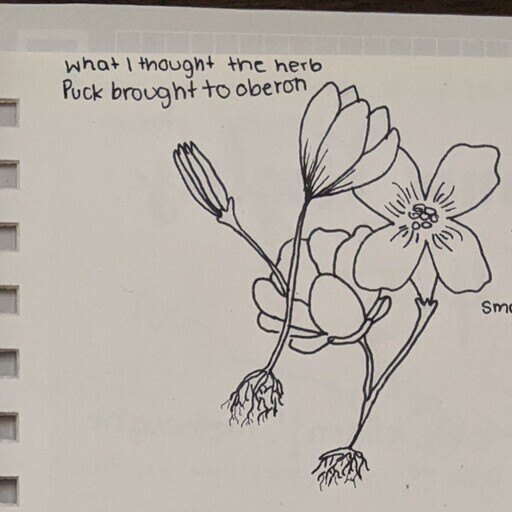 what I thought the herb
Puck brought to oberon